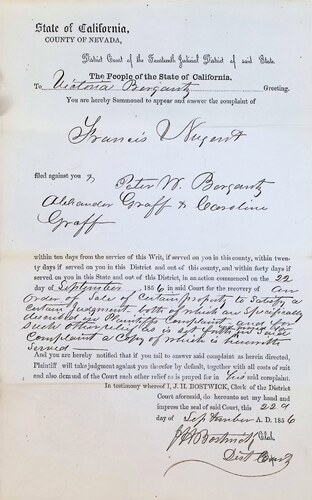 State of California,
COUNTY OF NEVADA,
District Court of the Fourteenth Judicial District of said State.
The People of the State of California.
To Victoria Bergantz Greeting.
You are hereby Summoned to appear and answer the complaint of
Francis Nugent
filed against you & Peter W. Bergantz
Alexander Graff & Caroline
Graff
within ten days from the service of this Writ, if served on you in this county, within twen-
ty days if served on you in this District and out of this county, and within forty days if
served on you in this State and out of this District, in an action commenced on the 22
day of September 1856 in said Court for the recovery of an
Order of Sale of Certain property to Satisfy a
certain Judgment both of which are Specifically
described in Plaintiffs Complaint and for
such other relief as is set forth in said
Complaint a Copy of which is herewith
Served
And you are hereby notified that if you fail to answer said complaint as herein directed,
Plaintiff will take judgment against you therefor by default, together with all costs of suit
and also demand of the Court such other relief as is prayed for in his said complaint.
In testimony whereof I, J. H. BOSTWICK, Clerk of the District
Court aforesaid, do hereunto set my hand and
impress the seal of said Court, this 22d
day of September A. D. 1856
J H Bostwick Clerk.
Dist Court